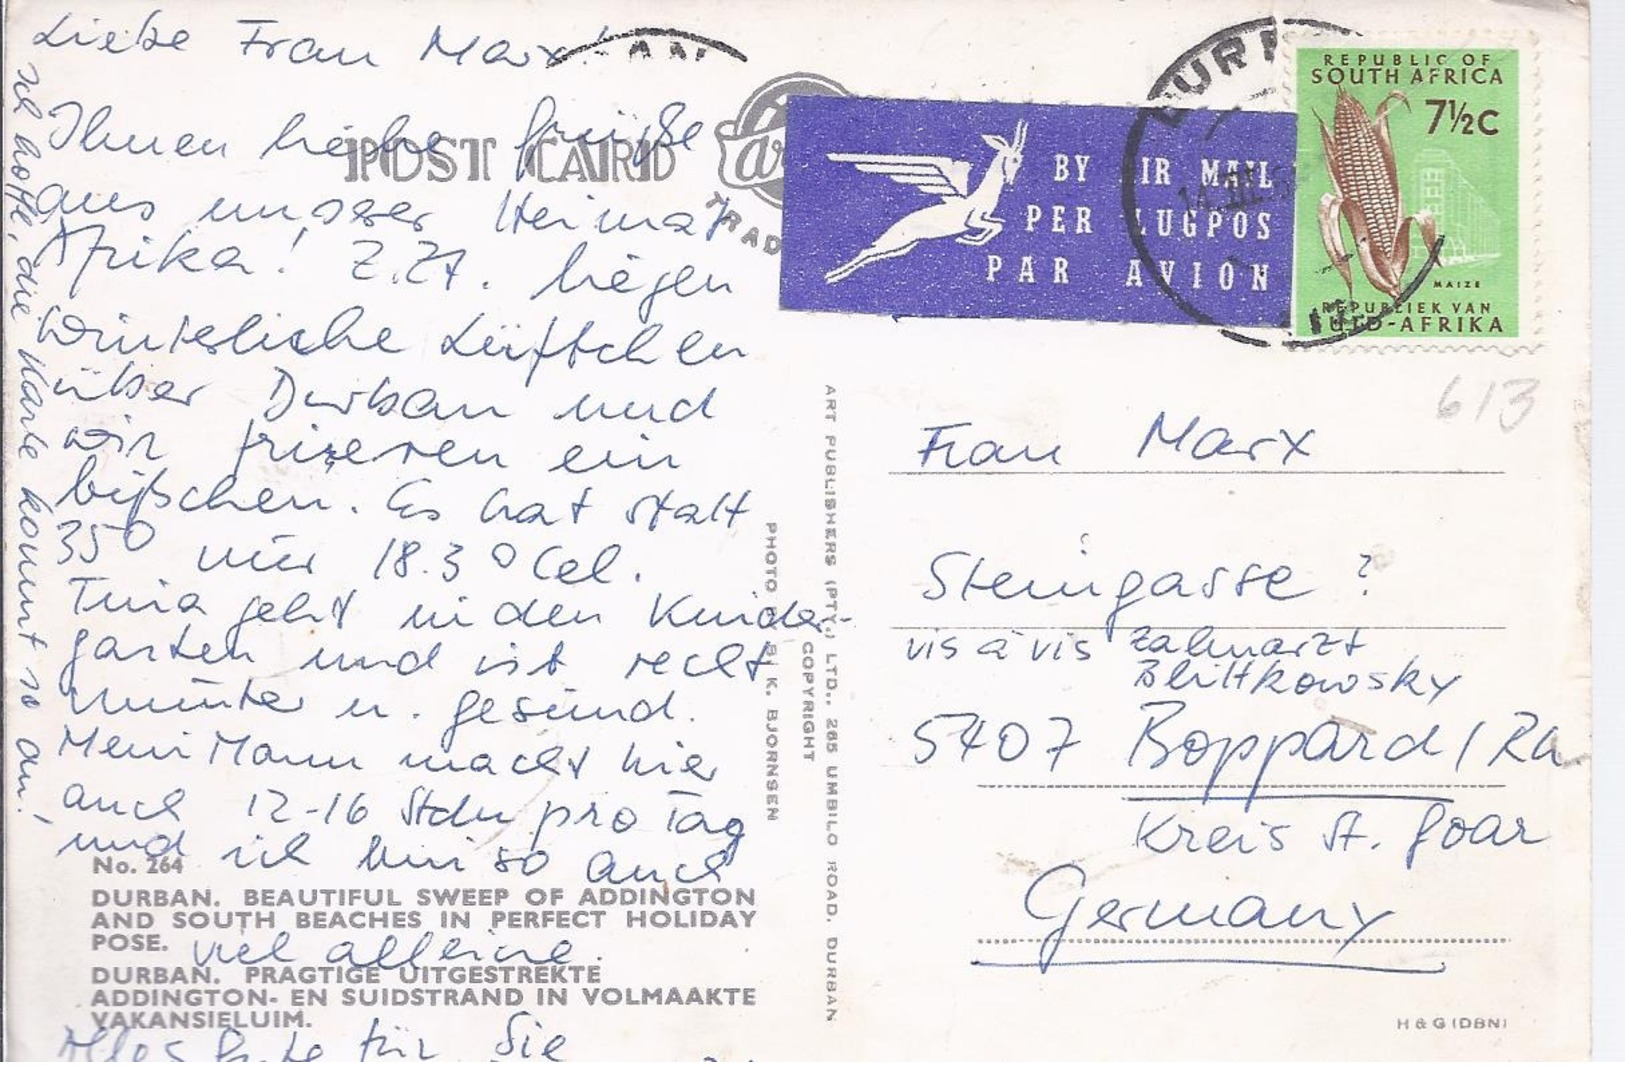 Liebe Frau Marx!
Ihnen liebe Grüße
aus unserer Heimat
Afrika! Z.Zt. liegen
winterliche Lüftchen
über Durban und
wir frieren ein
bißchen. Es hat statt
35° nur 18.3° Cel.
Tina geht in den Kinder-
garten und ist recht
munter u. gesund.
Mein Mann macht hier
auch 12-16 Stdn pro Tag
und ich bin so auch
viel alleine.
Alles Gute für Sie
Ich hoffe, die Karte kommt so an!
POST CARD
TRAD
No. 264
DURBAN. BEAUTIFUL SWEEP OF ADDINGTON
AND SOUTH BEACHES IN PERFECT HOLIDAY
POSE.
DURBAN. PRAGTIGE UITGESTREKTE
ADDINGTON- EN SUIDSTRAND IN VOLMAAKTE
VAKANSIELUIM.
PHOTO BY K. BJORNSEN
COPYRIGHT
ART PUBLISHERS (PTY.) LTD., 265 UMBILO ROAD, DURBAN
BY AIR MAIL
PER LUGPOS
PAR AVION
REPUBLIC OF
SOUTH AFRICA
7½c
MAIZE
REPUBLIEK VAN
SUID-AFRIKA
613
Frau Marx
Steingasse ?
vis à vis Zahnarzt
Blittkowsky
5407 Boppard / Rh
Kreis St. Goar
Germany
H & G (DBN)